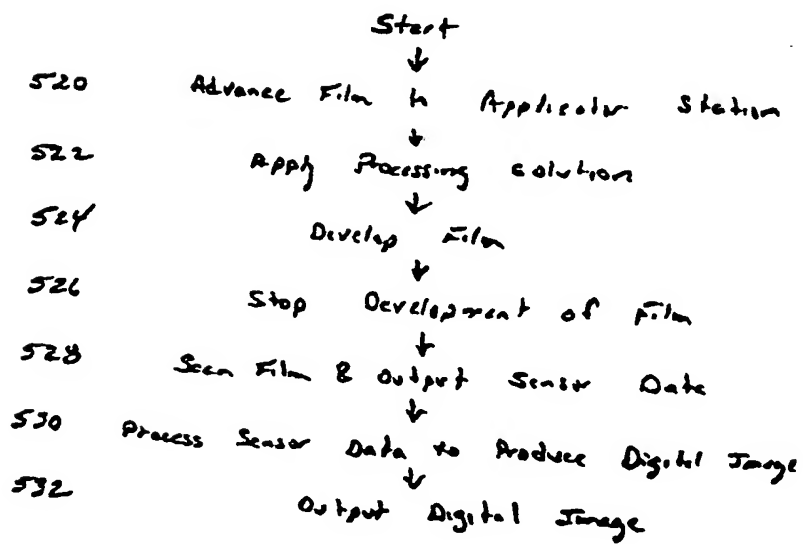 Start
520 Advance Film to Applicator Station
522 Apply Processing solution
524 Develop Film
526 Stop Development of Film
528 Scan Film & Output Sensor Data
530 Process Sensor Data to Produce Digital Image
532 Output Digital Image